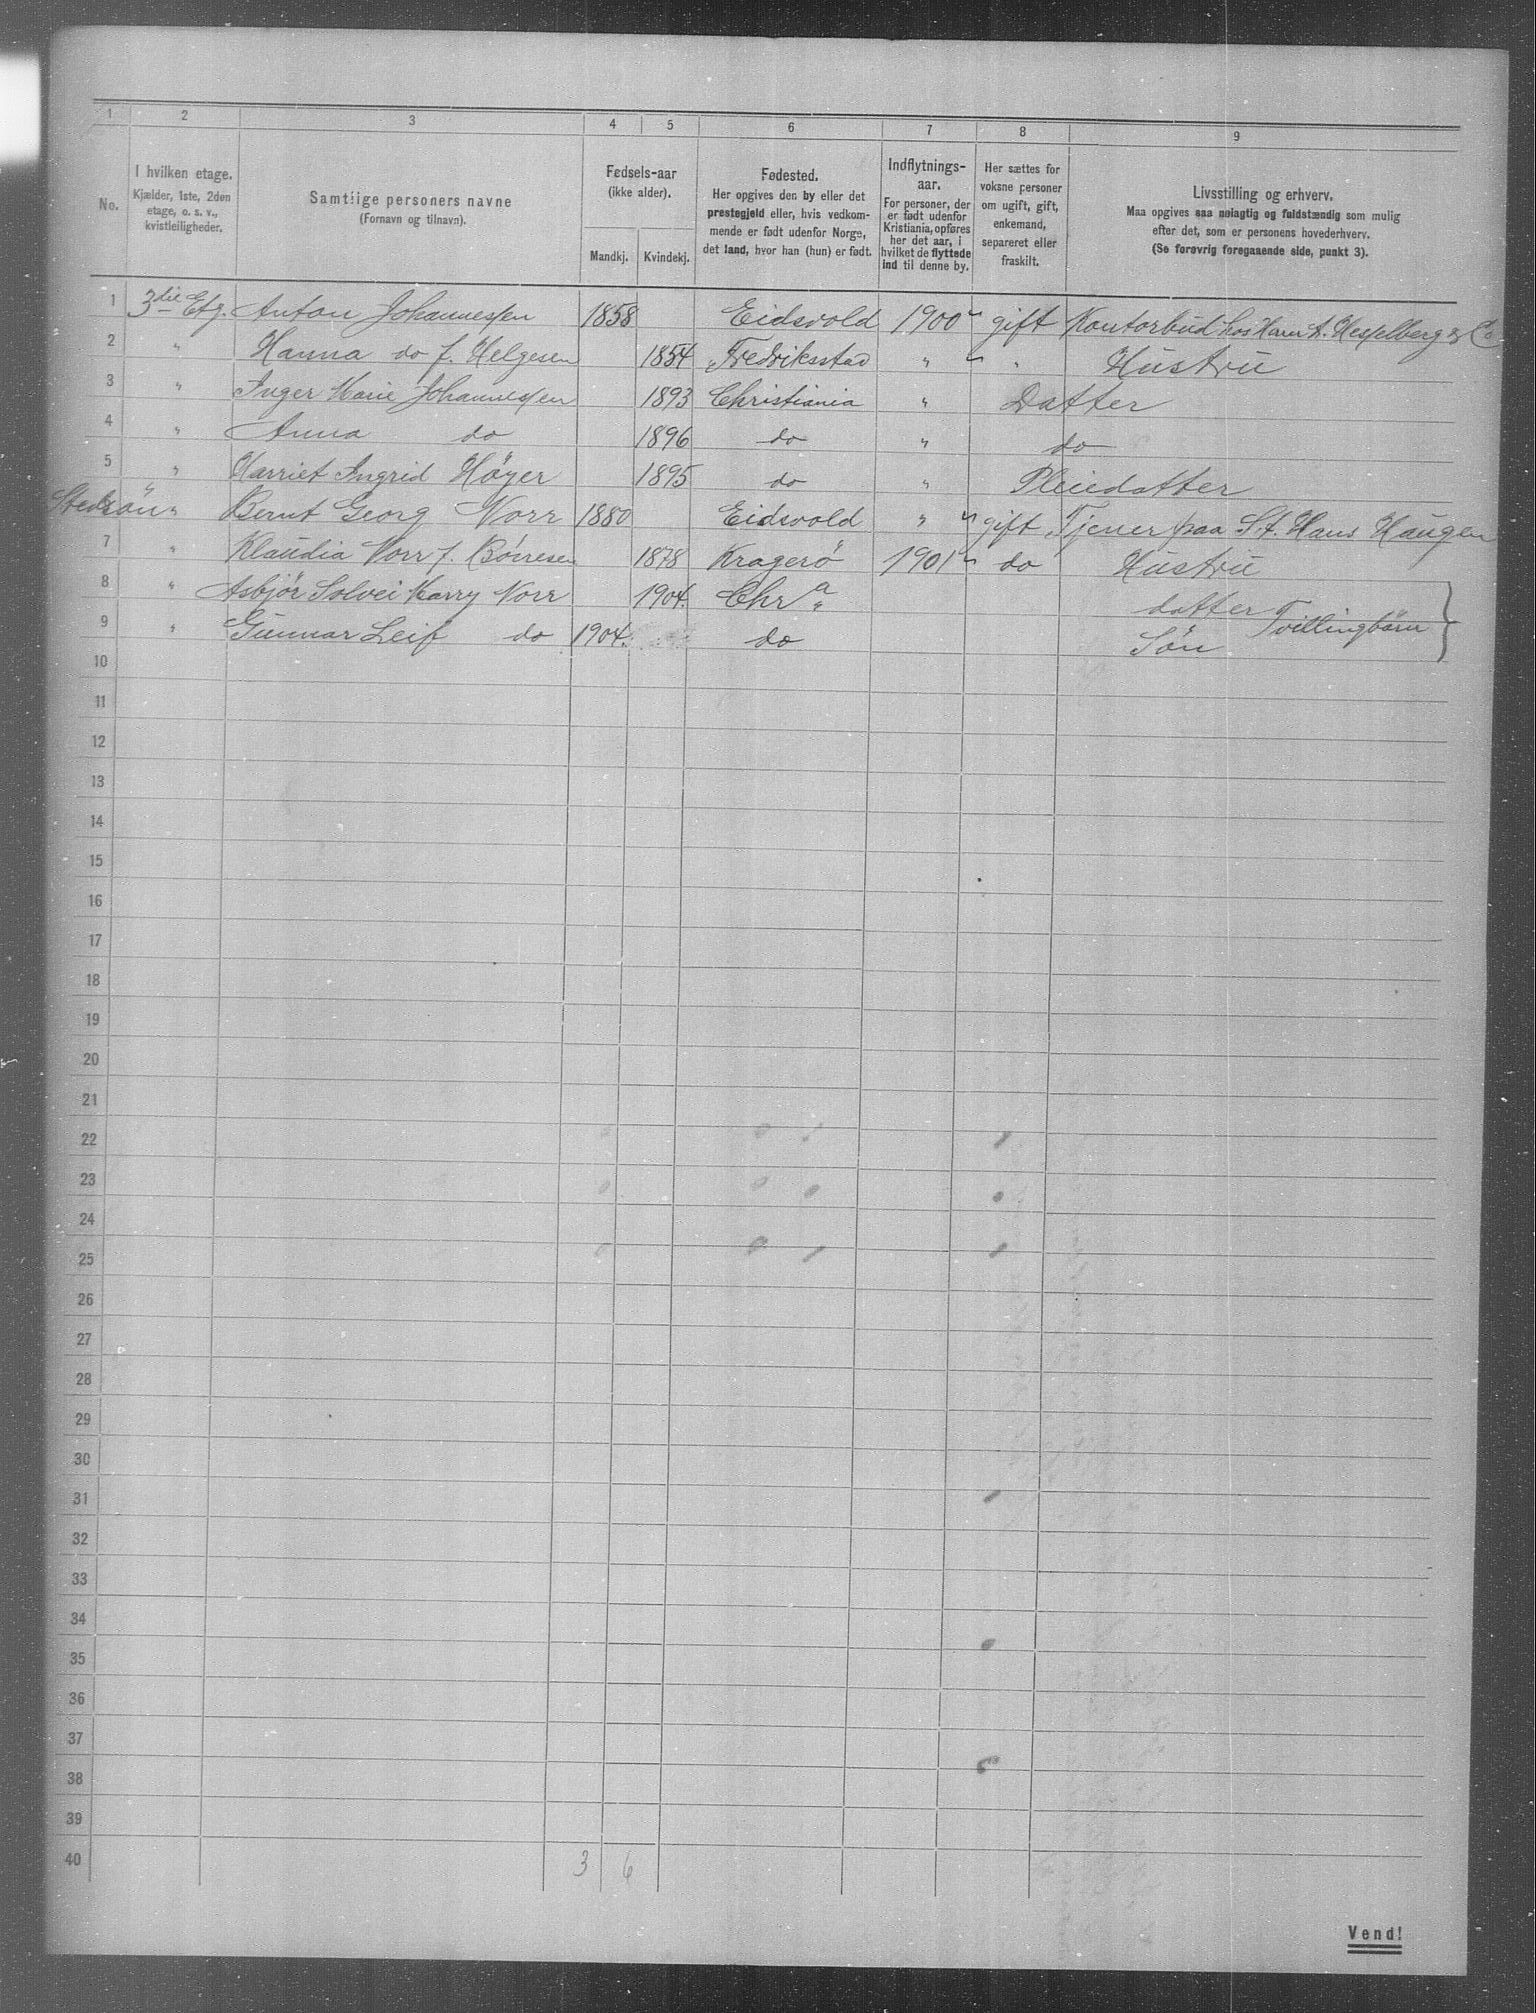 1 2 3 4 5 6 7 8 9
No.
I hvilken etage.
Kjælder, 1ste, 2den
etage, o. s. v.,
kvistleiligheder.
Samtlige personers navne
(Fornavn og tilnavn).
Fødsels-aar
(ikke alder).
Mandkj. Kvindekj.
Fødested.
Her opgives den by eller det
prestegjeld eller, hvis vedkom-
mende er født udenfor Norge,
det land, hvor han (hun) er født.
Indflytnings-
aar.
For personer, der
er født udenfor
Kristiania, opføres
her det aar, i
hvilket de flyttede
ind til denne by.
Her sættes for
voksne personer
om ugift, gift,
enkemand,
separeret eller
fraskilt.
Livsstilling og erhverv.
Maa opgives saa nøiagtig og fuldstændig som mulig
efter det, som er personens hovederhverv.
(Se forøvrig foregaaende side, punkt 3).
1 3die Etg. Anton Johannessen 1858 Eidsvold 1900 gift Kontorbud hos Herr A. Hesselberg & Co
2 " Hanna do f. Helgesen 1854 Fredriksstad " " Hustru
3 " Inger Marie Johannessen 1893 Christiania " Datter
4 " Anna do 1896 do " do
5 " Harriet Ingrid Høyer 1895 do " Pleiedatter
Stedsön " Bernt Georg Norr 1880 Eidsvold " gift Tjener paa St. Hans Haugen
7 " Klaudia Norr f. Börresen 1878 Kragerö 1901 do Hustru
8 " Asbjör Solvei Harry Norr 1904. Chr.a datter Tvillingbörn
9 " Gunnar Leif do 1904. do Sön
10
11
12
13
14
15
16
17
18
19
20
21
22
23
24
25
26
27
28
29
30
31
32
33
34
35
36
37
38
39
40 3 6
Vend!